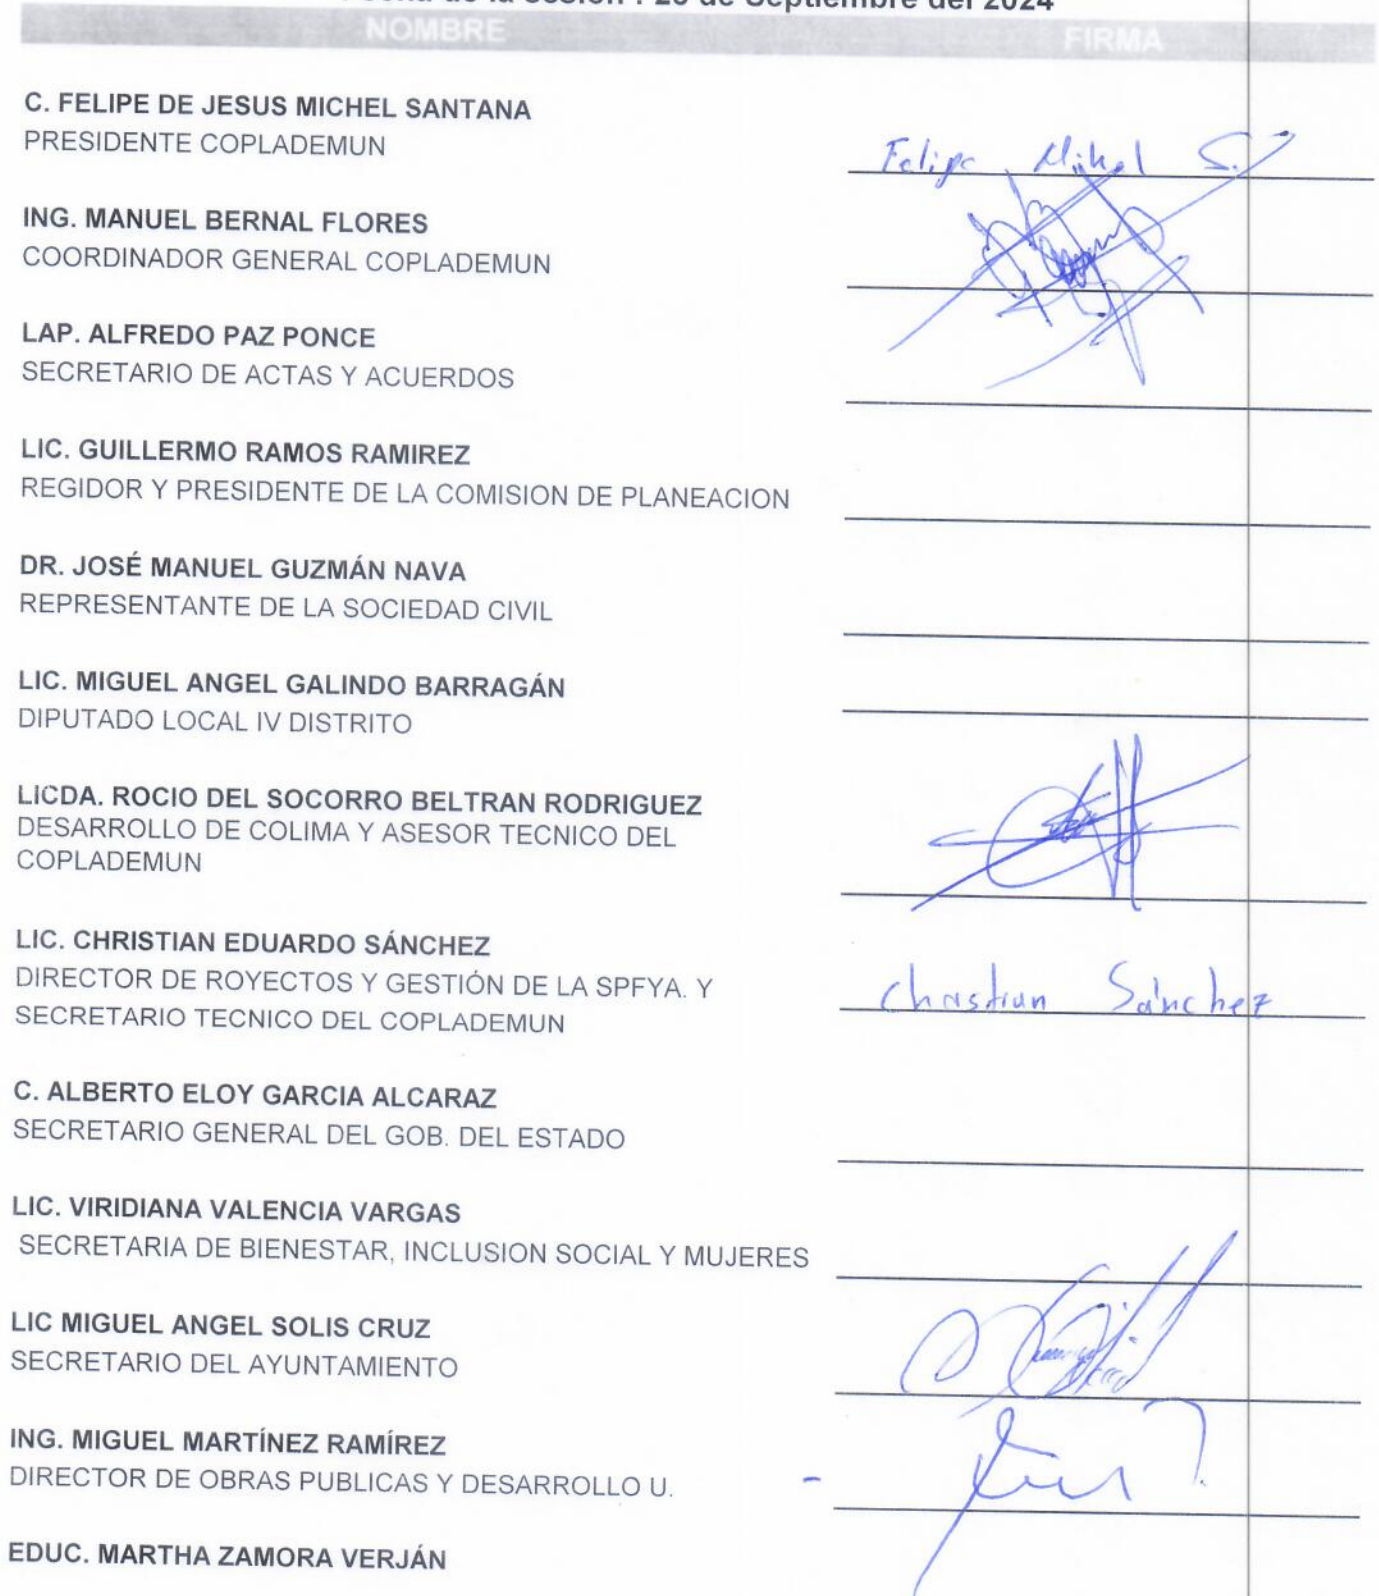 de la sesión : 25 de Septiembre del 2024
NOMBRE FIRMA
C. FELIPE DE JESUS MICHEL SANTANA
PRESIDENTE COPLADEMUN
Felipe Michel S.
ING. MANUEL BERNAL FLORES
COORDINADOR GENERAL COPLADEMUN
LAP. ALFREDO PAZ PONCE
SECRETARIO DE ACTAS Y ACUERDOS
LIC. GUILLERMO RAMOS RAMIREZ
REGIDOR Y PRESIDENTE DE LA COMISION DE PLANEACION
DR. JOSÉ MANUEL GUZMÁN NAVA
REPRESENTANTE DE LA SOCIEDAD CIVIL
LIC. MIGUEL ANGEL GALINDO BARRAGÁN
DIPUTADO LOCAL IV DISTRITO
LICDA. ROCIO DEL SOCORRO BELTRAN RODRIGUEZ
DESARROLLO DE COLIMA Y ASESOR TECNICO DEL
COPLADEMUN
LIC. CHRISTIAN EDUARDO SÁNCHEZ
DIRECTOR DE ROYECTOS Y GESTIÓN DE LA SPFYA. Y
SECRETARIO TECNICO DEL COPLADEMUN
Christian Sánchez
C. ALBERTO ELOY GARCIA ALCARAZ
SECRETARIO GENERAL DEL GOB. DEL ESTADO
LIC. VIRIDIANA VALENCIA VARGAS
SECRETARIA DE BIENESTAR, INCLUSION SOCIAL Y MUJERES
LIC MIGUEL ANGEL SOLIS CRUZ
SECRETARIO DEL AYUNTAMIENTO
ING. MIGUEL MARTÍNEZ RAMÍREZ
DIRECTOR DE OBRAS PUBLICAS Y DESARROLLO U.
EDUC. MARTHA ZAMORA VERJÁN